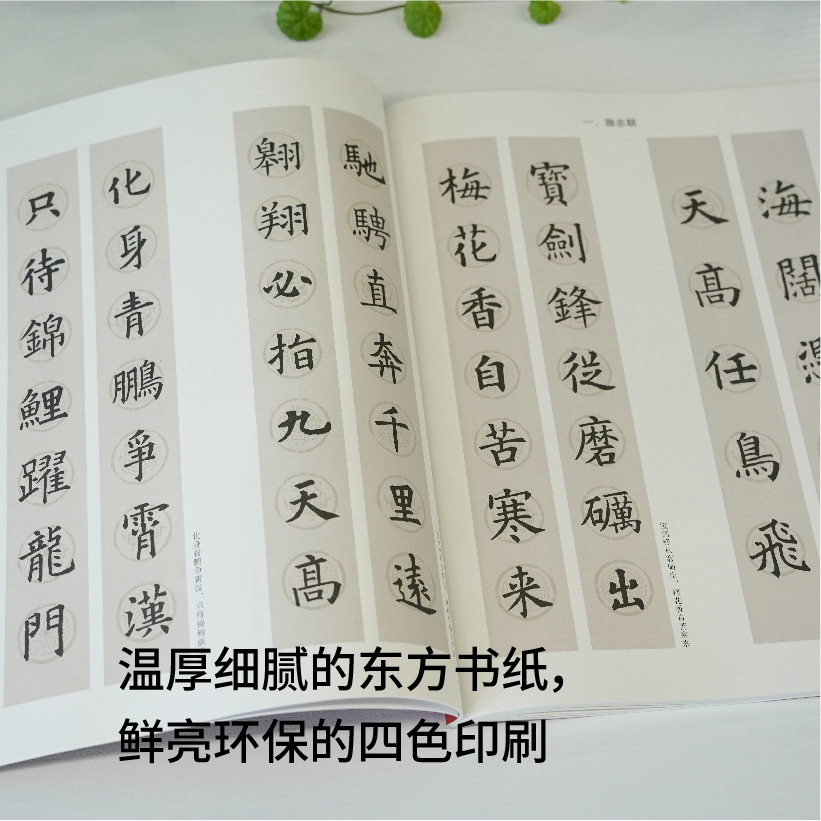 一、励志联
海闊
天髙任鳥飛
寶劍鋒從磨礪出
梅花香自苦寒来
宝剑锋从磨砺出，梅花香自苦寒来
馳騁直奔千里遠
翱翔必指九天髙
化身青鹏争霄汉，只待锦鲤跃
化身青鵬爭霄漢
只待錦鯉躍龍門
温厚细腻的东方书纸，
鲜亮环保的四色印刷